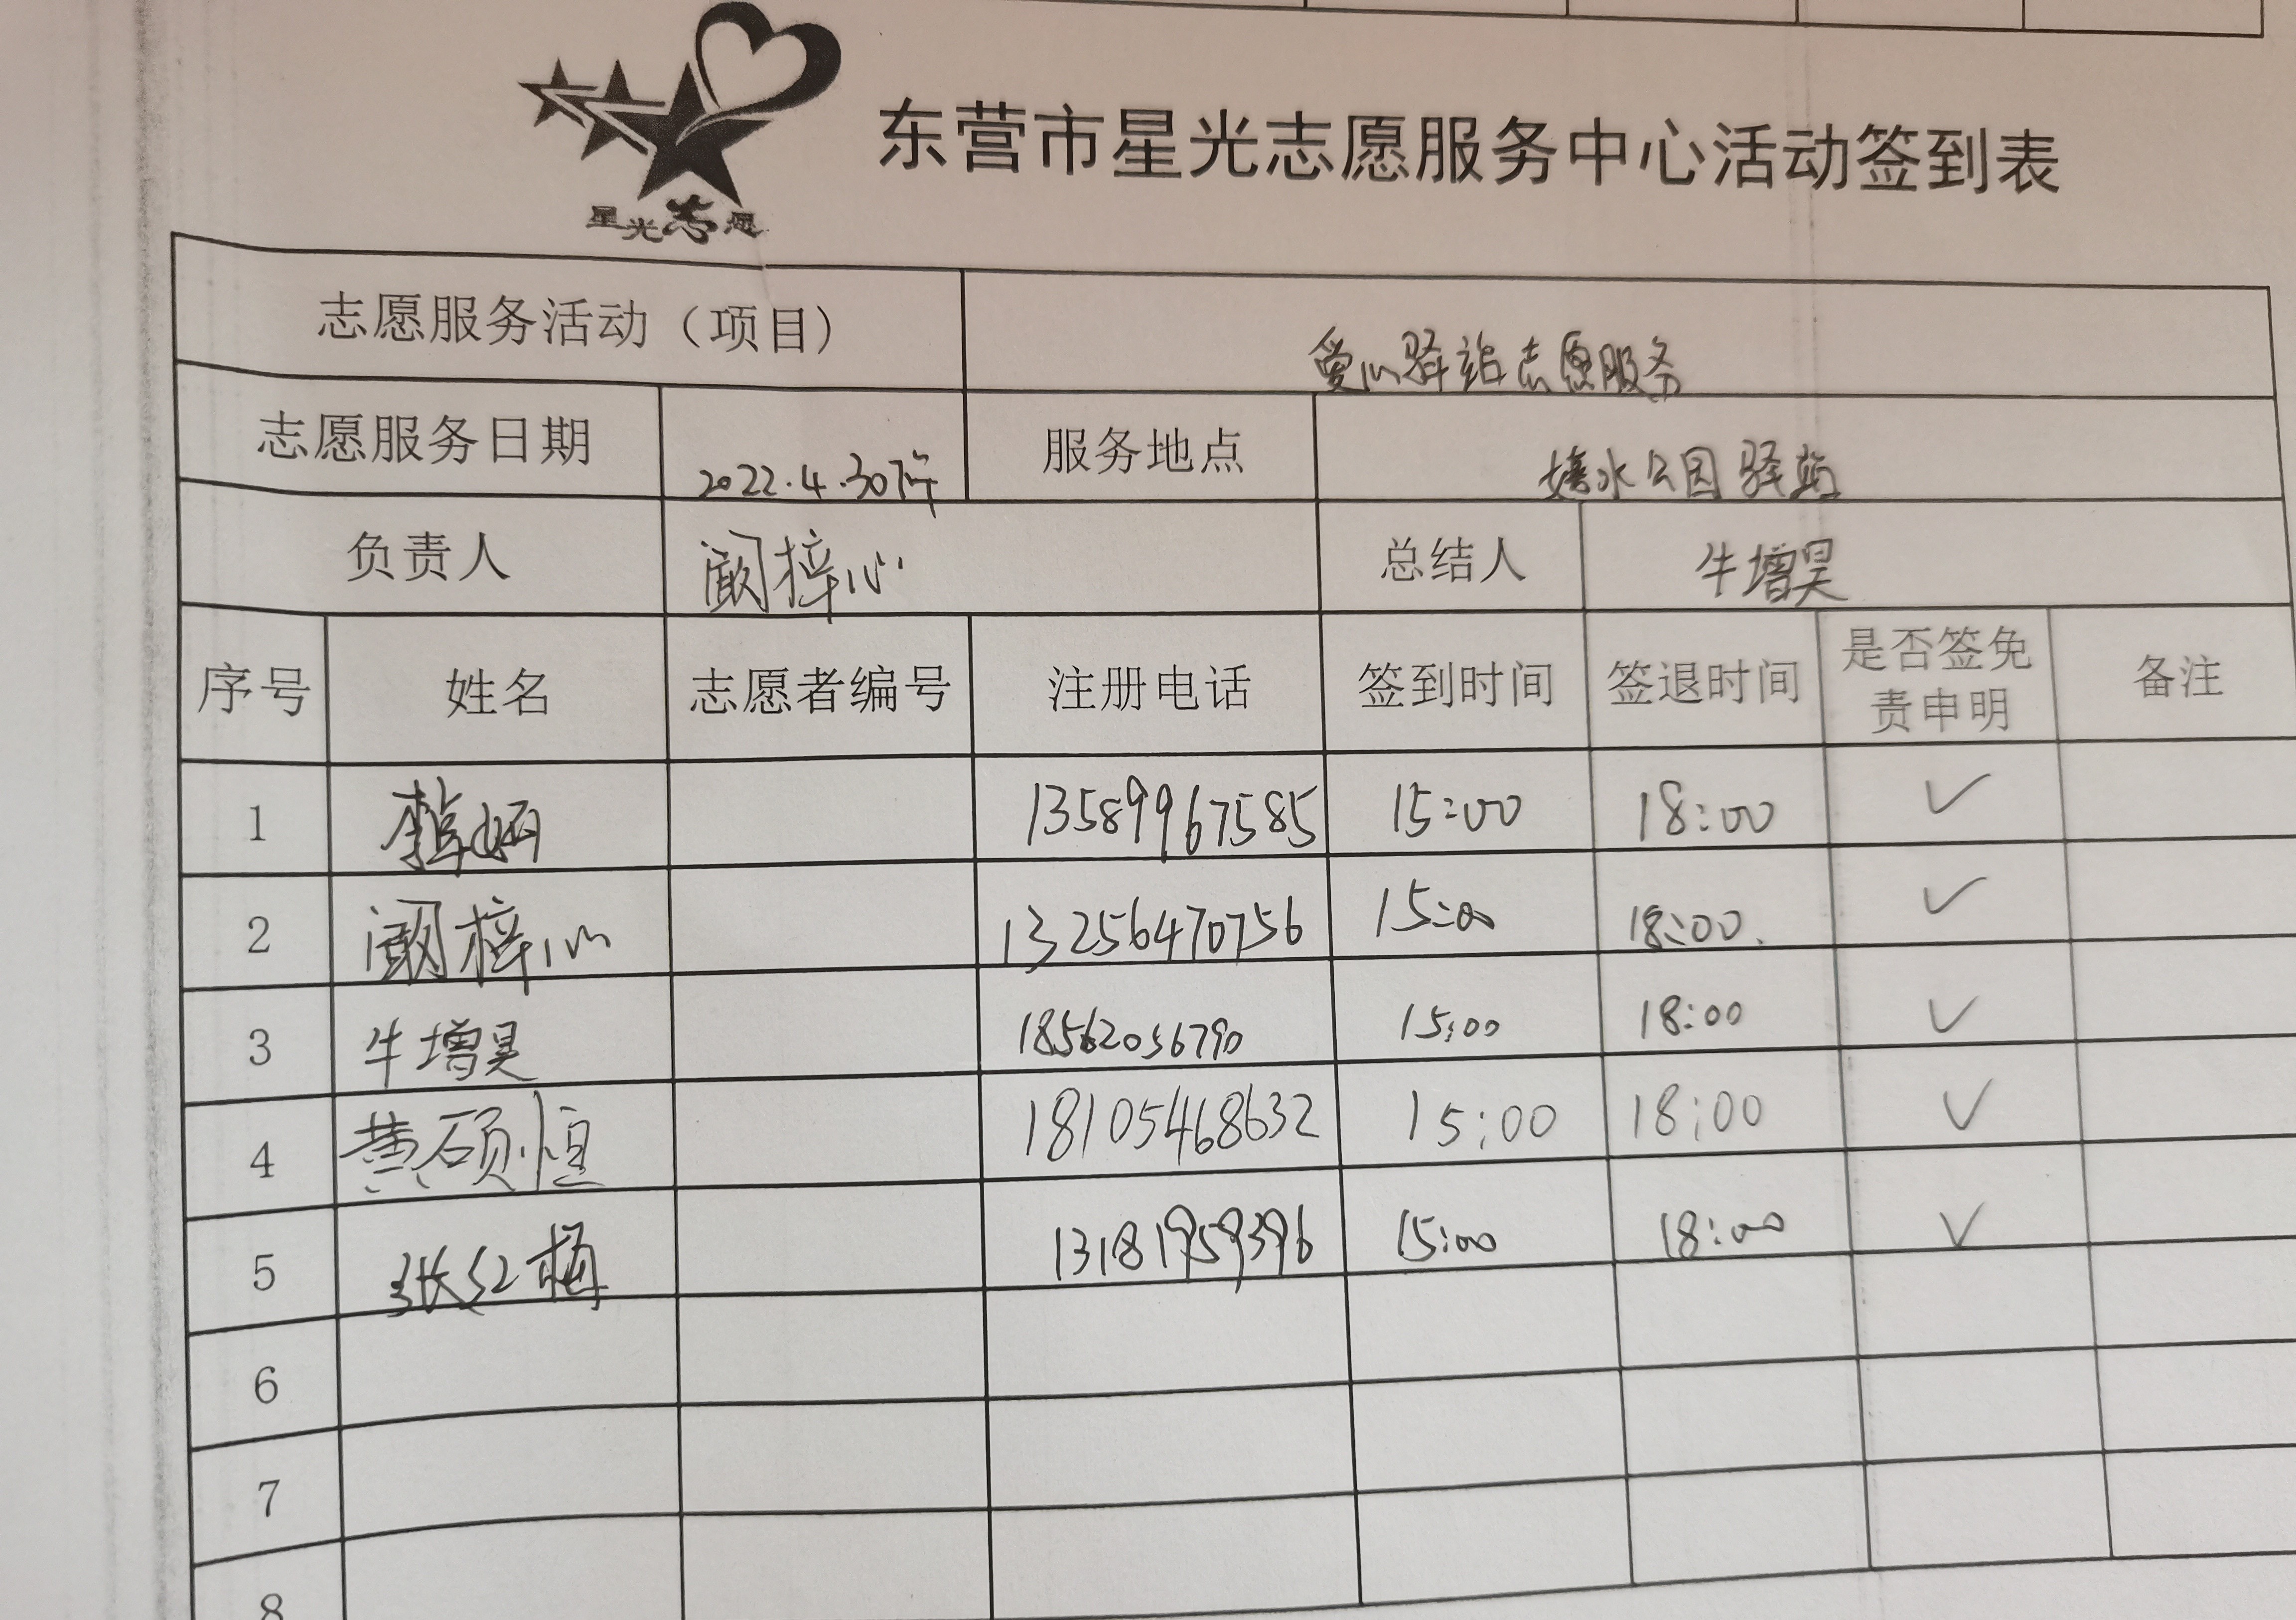 星光志愿
东营市星光志愿服务中心活动签到表
志愿服务活动（项目） 爱心驿站志愿服务
志愿服务日期 2022.4.30下午 服务地点 嬉水公园驿站
负责人 阚梓心 总结人 牛增昊
序号 姓名 志愿者编号 注册电话 签到时间 签退时间 是否签免责申明 备注
1 13589967585 15:00 18:00 ✓
2 阚梓心 13256470756 15:00 18:00. ✓
3 牛增昊 18562056790 15:00 18:00 ✓
4 黄硕恒 18105468632 15:00 18:00 ✓
5 张红梅 13181959396 15:00 18:00 ✓
6
7
8